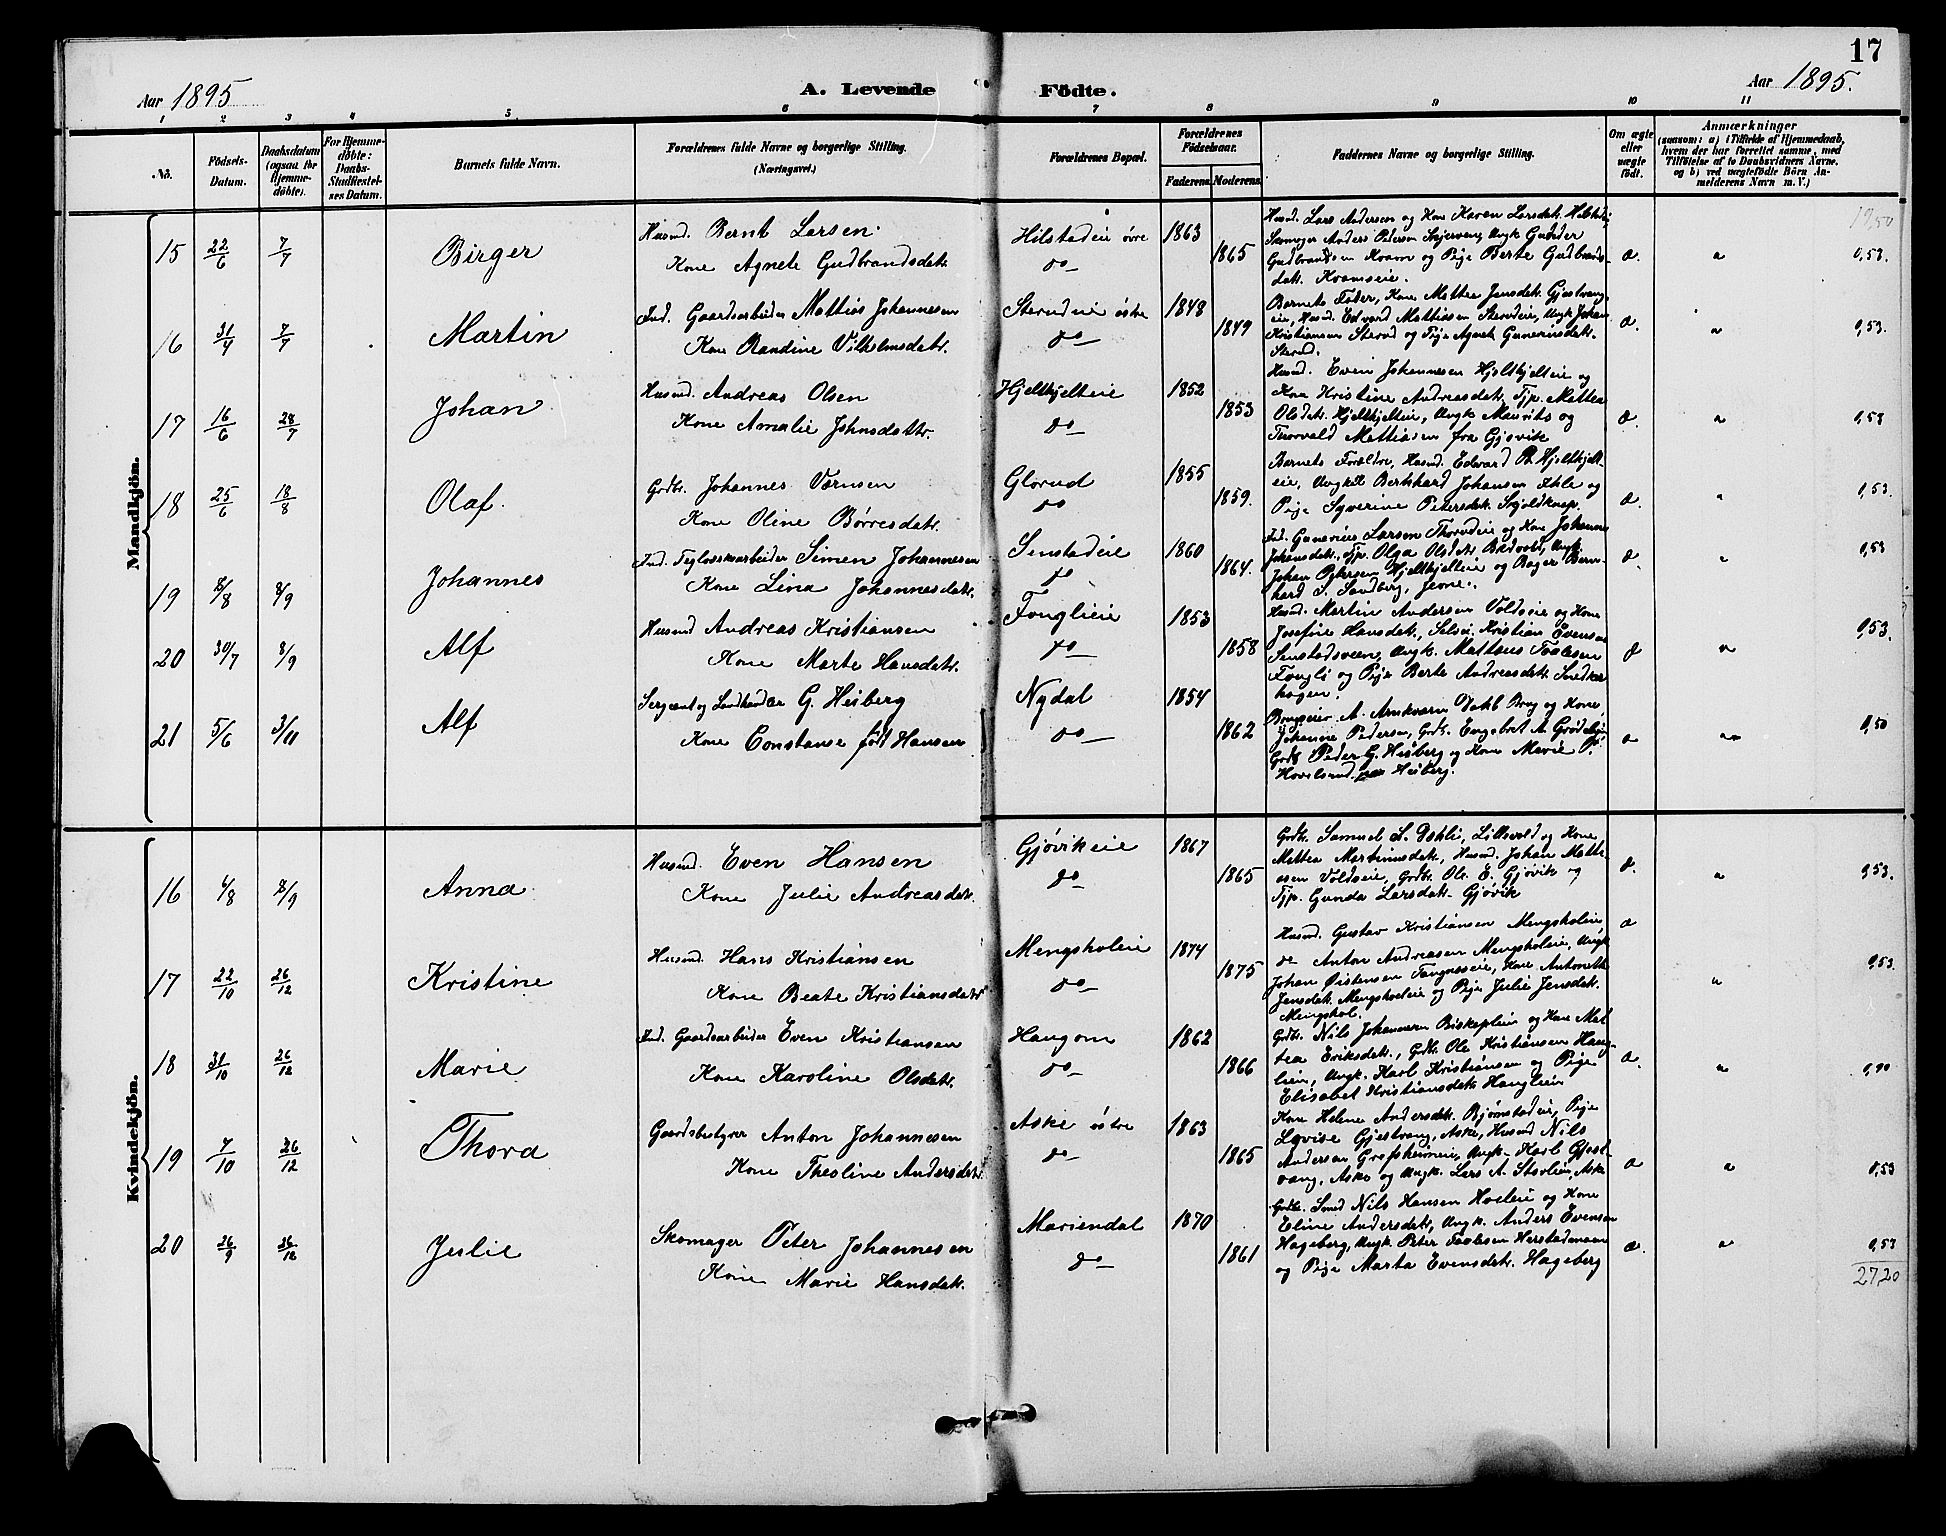 17
Aar 1895
A. Levende Födte.
Aar 1895.
1 2 3 4 5 6 7 8 9 10 11
No.
Födsels-Datum.
Daabsdatum (ogsaa for Hjemme-döbte).
For Hjemme-döbte: Daabs-Stadfæstel-ses Datum.
Barnets fulde Navn.
Forældrenes fulde Navne og borgerlige Stilling.
(Næringsvei.)
Forældrenes Bopæl.
Forældrenes Födselsaar.
Faderens. Moderens.
Faddernes Navne og borgerlige Stilling.
Om ægte eller uægte födt.
Anmærkninger
(saasom: a) i Tilfælde af Hjemmedaab,
hvem der har forrettet samme, med
Tilföielse af to Daabsvidners Navne,
og b) ved uægtefödte Börn An-
melderens Navn m. V.)
19,50
Mandkjön.
15 22/6 7/7 Birger
Husmd. Bernt Larsen.
Kone Agnete Gudbrandsdatr.
Hilstadeie øvre
do
1863 1865
Husmd. Lars Andersen og Kone Karen Larsdatr. Hilstad,
Skomager Anders Pedersen Skjerven, Ungk Gudder
Gudbrandsen Kram og Pige Berte Gudbrands-
datr. Kramseie.
æ. " 0,53.
16 31/4 7/7 Martin
Ind. Gaardsarbeider Mattias Johannesen
Kone Randine Vilhelmsdatr.
Sterudeie østre
do
1848 1849
Barnets Fader, Kone Mathea Jensdatr. Gjestvang-
eie, Husmd. Edvard Mathiasen Sterudeie, Ungk Johan
Kristiansen Sterud og Pige Agnete Gunerusdatr.
Sterud.
æ. " 0,53.
17 16/6 28/7 Johan
Husmd. Andreas Olsen
Kone Amalie Johnsdattr.
Hjeltkjelteie
do
1852 1853
Husmd. Even Johannesen Hjeltkjelteie og
Kone Kristine Andreasdatr. Tjp. Mattea
Olsdatr. Hjeltkjelteie, Ungk Maurits og
Thorvald Mattiasen fra Gjøvik
æ. " 0,53
18 25/6 18/8 Olaf.
Grdbr. Johannes Værnsen
Kone Oline Børresdatr.
Glorud
do
1855 1859.
Barnets Forældre, Husmd. Edvard R. Hjeltkjelt-
eie, Ungkl Bernhard Johansen Ihle og
Pige Syverine Petersdatr. Skjoldknep.
æ. " 0,53.
19 8/8 8/9 Johannes
Ind. Teglværksarbeider Simen Johannesen
Kone Lina Johannesdatr.
Senstadeie
do
1860 1864.
Ind. Gunerius Larsen Thorudeie og Kone Johanne
Johansdatr., Tjp. Olga Olsdatr. Badvold, Ungk.
Johan Petersen Hjeltkjelteie og Bager Bern-
hard S. Sandberg, Jevne.
æ. " 0,53
20 30/7 8/9 Alf
Husmd Andreas Kristiansen
Kone Marte Hansdatr.
Fonglieie
do
1853 1858
Husmd. Martin Andersen Voldseie og Kone
Josefine Hansdatr., Selvei. Kristian Evensen
Senstadsveen, Ungk. Mattæus Paalesen
Fongli og Pige Berte Andreasdatr. Snedker-
hagen.
æ " 0,53.
21 5/6 3/11 Alf
Sergeant og Landhandler G. Heiberg
Kone Constanse född Hansen
Nydal
do
1854 1862
Brugseier A. Arnkværn Dahl Brug og Kone
Johanne Pedersen, Grdb. Engebret A. Grødahl
Grdb. Peder G. Heiberg og Kone Marie P.
Hovelsrud Heiberg.
æ " 0,50
Kvindekjön.
16 4/8 8/9 Anna
Husmd. Even Hansen
Kone Julie Andreasdatr.
Gjøvikeie
do
1867 1865
Grdbr. Samuel L. Dehli, Lillevold og Kone
Mattea Martinusdatr., Husmd. Johan Matti-
asen Voldseie, Grdbr. Ole E. Gjøvik og
Tjp. Gunda Larsdatr. Gjøvik
æ. " 0,53.
17 22/10 26/12 Kristine
Husmd. Hans Kristiansen
Kone Beate Kristiansdatr
Mengsholeie
do
1874 1875
Husmd. Gustav Kristiansen Mengsholeie,
do Anton Andreasen Mengsholeie, Ungk
Johan Øistensen Fangneseie, Kone Antonette
Jensdatr. Mengsholeie og Pige Julie Jensdatr.
Mengshol.
æ " 0,53.
18 31/10 26/12 Marie
Ind. Gaardsarbeider Even Kristiansen
Kone Karoline Olsdatr.
Haugom
do
1862 1866
Grdbr. Nils Johannesen Biskoplien og Kone Mat-
tea Eriksdatr., Grdbr. Ole Kristiansen Haug-
lien, Ungk. Karl Kristiansen og Pige
Elisabet Kristiansdatr. Hauglien
æ. " 0,90
19 7/10 26/12 Thora
Gaardsbestyrer Anton Johannesen
Kone Theoline Andersdatr.
Aske østre
do
1863 1865
Kone Helene Andersdatr. Bjørnstadeie, Pige
Lovise Gjestvang, Aske, Husmd Nils
Andersen Grefsheimeie, Ungk. Karl Gjest-
vang, Aske og Ungk. Lars A. Storlien, Aske
æ " 0,53
20 26/9 26/12 Julie
Skomager Peter Johannesen
Kone Marie Hansdatr.
Mariendal
do
1870 1861
Grdbr. Smed Nils Hansen Hoeleie og Kone
Eline Andersdatr., Ungk. Anders Evensen
Hageberg, Ungk. Peter Paalesen Herstadmoen
og Pige Marta Evensdatr. Hageberg
æ. " 0,53
27,20